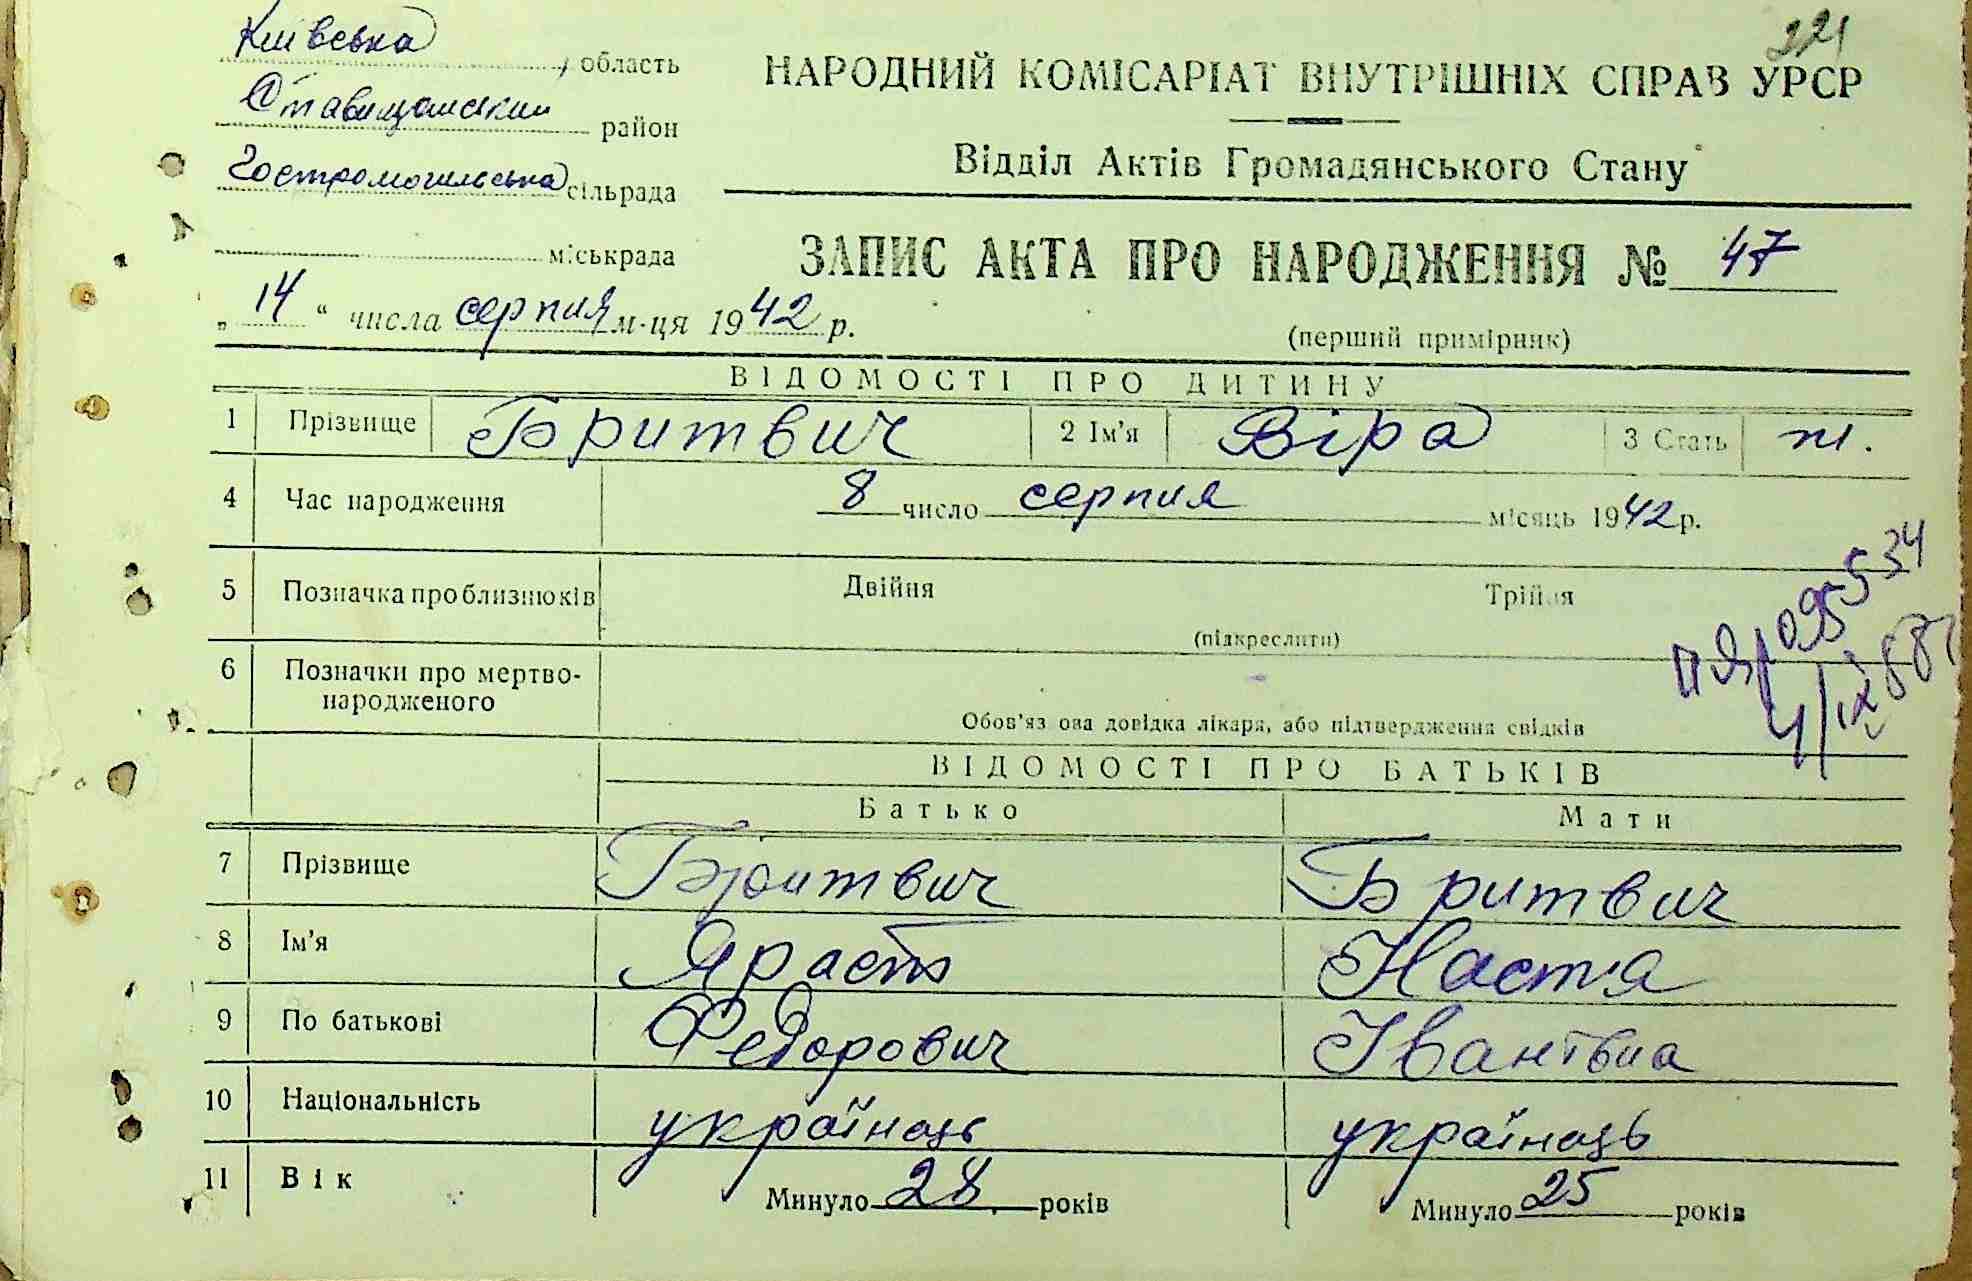 221
Київська область
НАРОДНИЙ КОМІСАРІАТ ВНУТРІШНІХ СПРАВ УРСР
Ставищанський район
Відділ Актів Громадянського Стану
Гостромогильська сільрада
міськрада
ЗАПИС АКТА ПРО НАРОДЖЕННЯ № 47
„ 14 “ числа серпня м-ця 1942 р.
(перший примірник)
ВІДОМОСТІ ПРО ДИТИНУ
1 Прізвище Бритвич 2 Ім'я Віра 3 Стать ж.
4 Час народження 8 число серпня місяць 1942 р.
5 Позначка про близнюків Двійня Трійня
(підкреслити)
6 Позначки про мертво-
народженого
Обов'яз ова довідка лікаря, або підтвердження свідків
ВІДОМОСТІ ПРО БАТЬКІВ
Батько Мати
7 Прізвище Бритвич Бритвич
8 Ім'я Настя
9 По батькові Федорович Іванівна
10 Національність українець українець
11 Вік Минуло 28 років Минуло 25 років